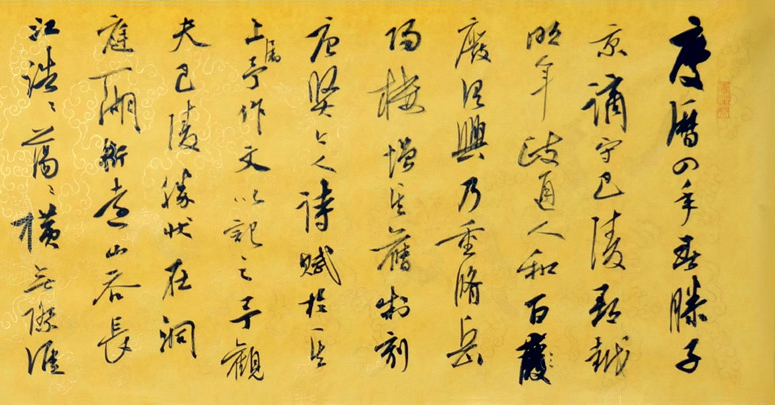 慶曆四年春滕子
京謫守巴陵郡越
明年政通人和百廢
廢具興乃重脩岳
陽樓增其舊制刻
唐賢今人詩賦於其
上屬予作文以記之予觀
夫巴陵勝狀在洞
庭一湖銜遠山吞長
江浩〻蕩〻橫無際涯